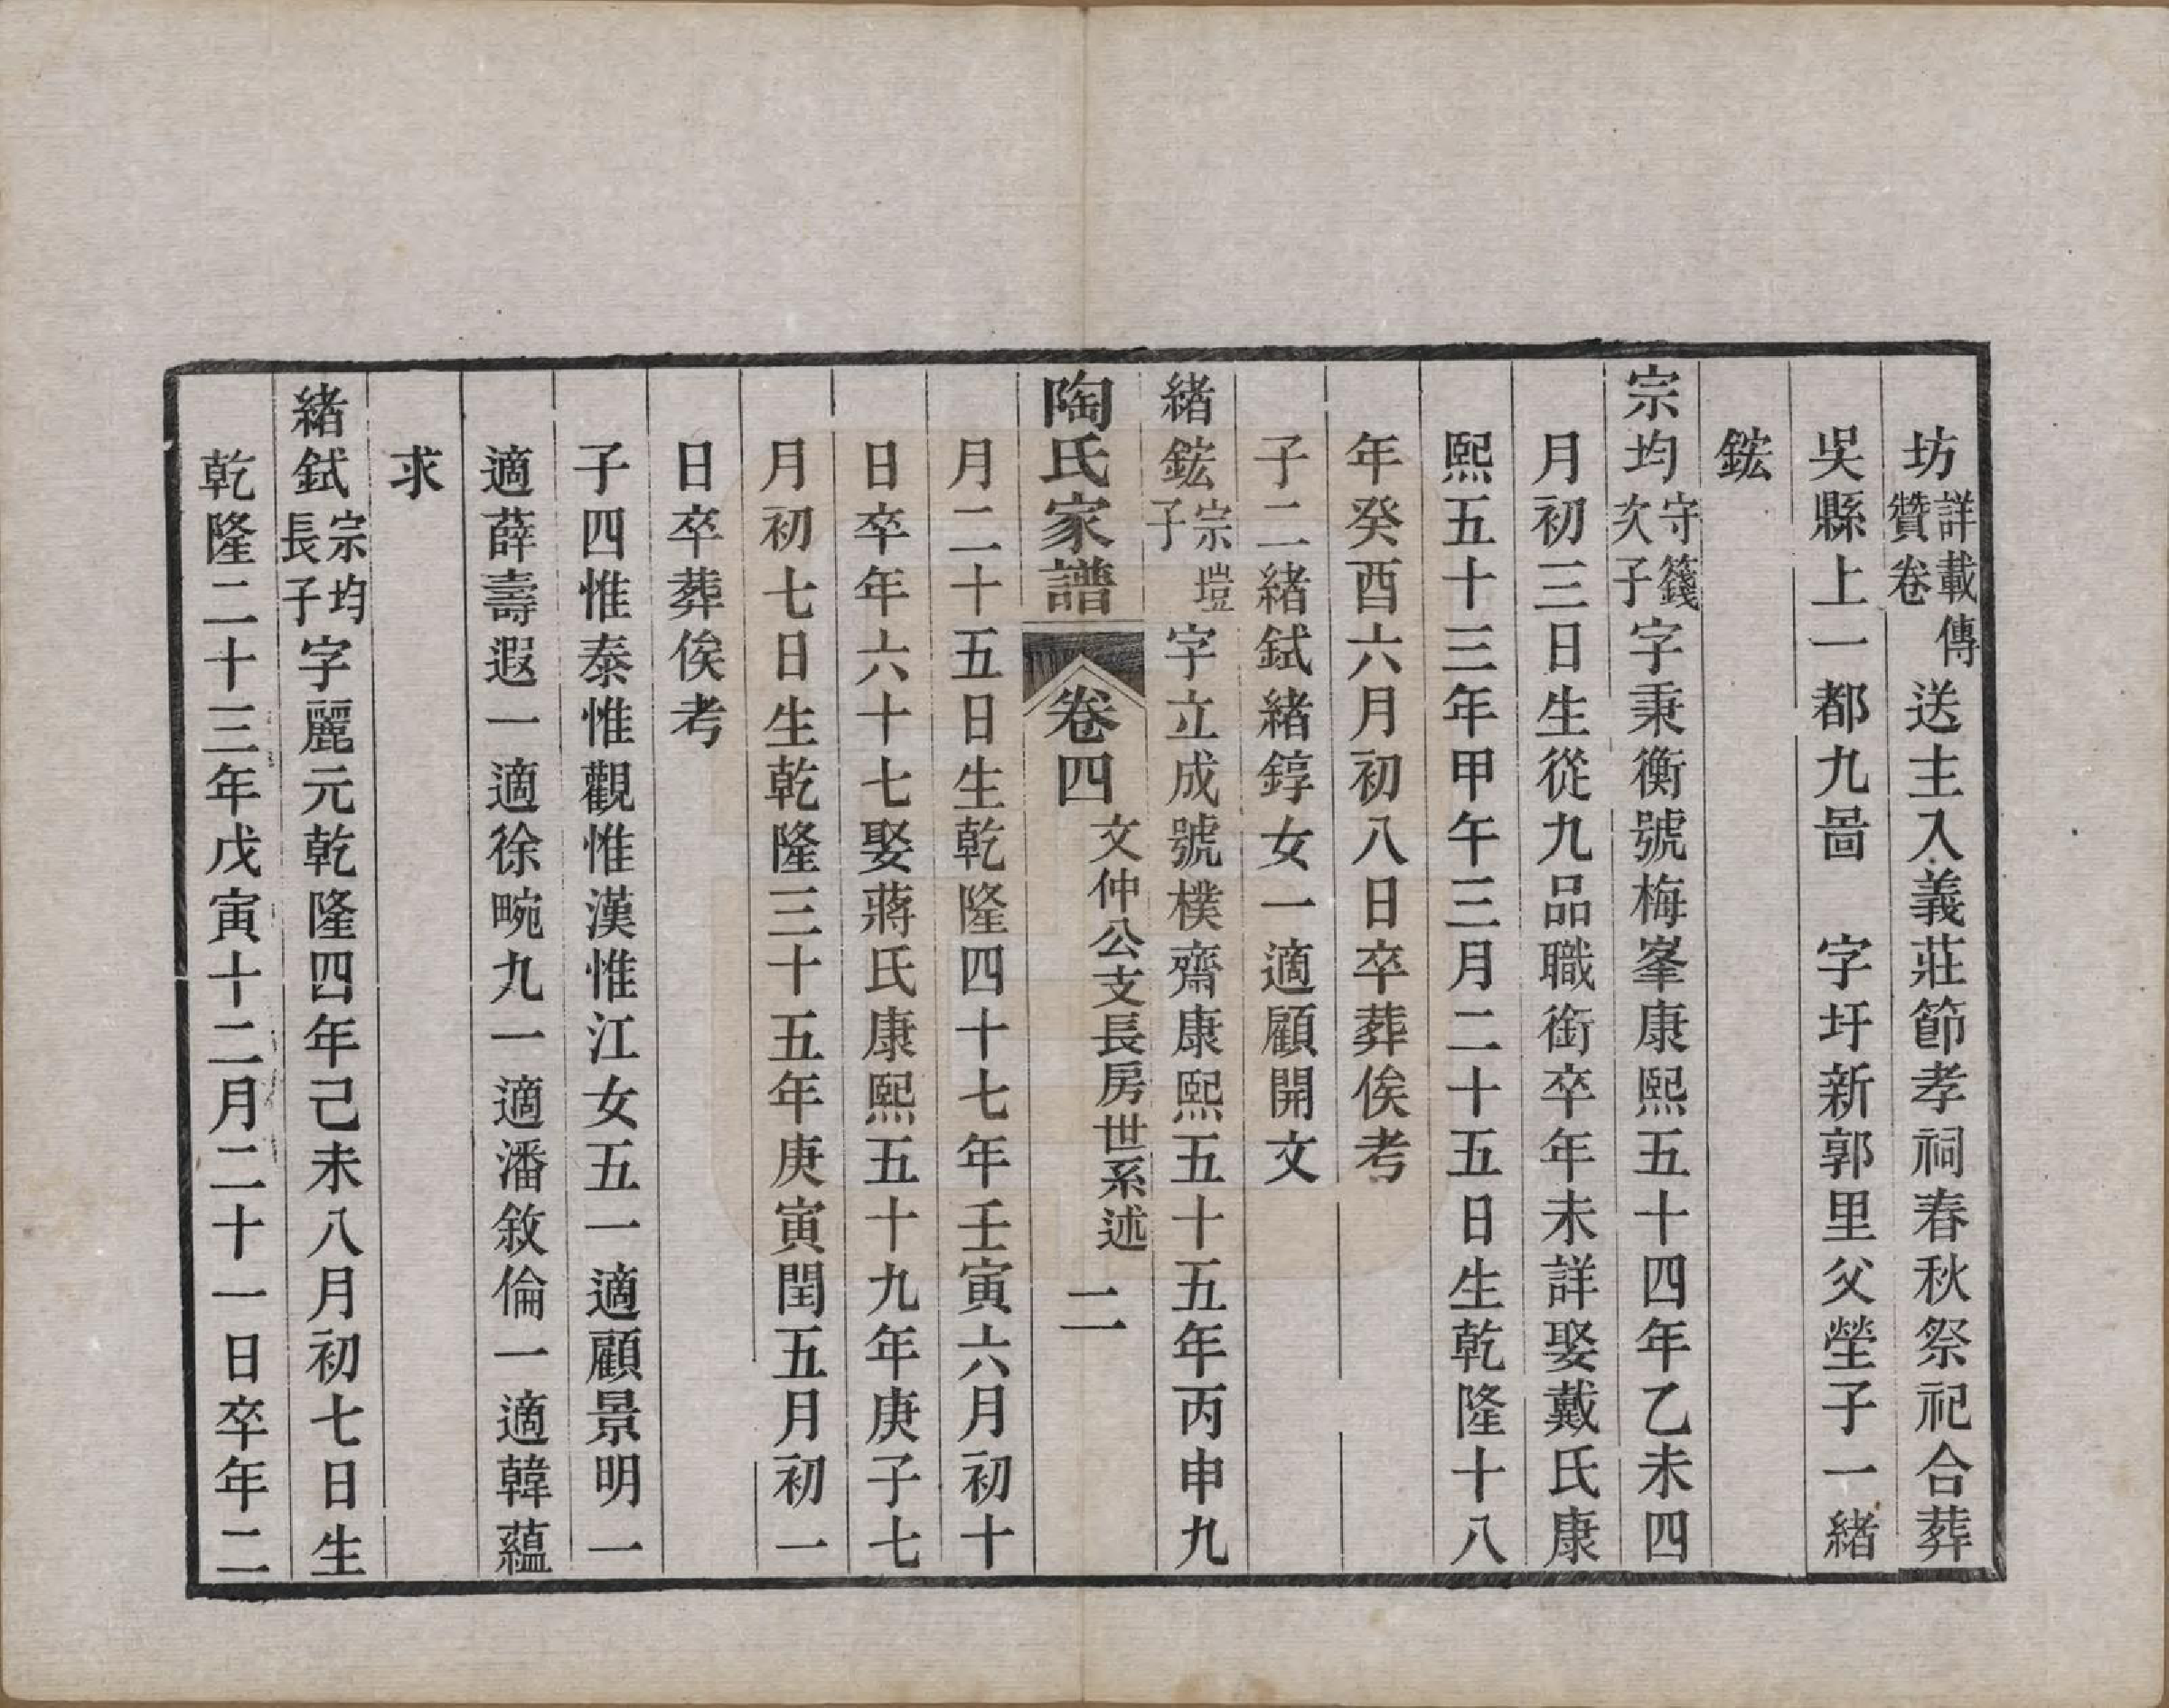 坊詳載傳贊卷送主入義莊節孝祠春秋祭祀合葬
吳縣上一都九啚　字圩新郭里父塋子一緒
鋐
宗均守籛次子字秉衡號梅峯康熙五十四年乙未四
月初三日生從九品職銜卒年未詳娶戴氏康
熙五十三年甲午三月二十五日生乾隆十八
年癸酉六月初八日卒葬俟考
子二緒鉽緒錞女一適顧開文
緒鋐宗塏子字立成號樸齋康熙五十五年丙申九
陶氏家譜　卷四　文仲公支長房世系述　二
月二十五日生乾隆四十七年壬寅六月初十
日卒年六十七娶蔣氏康熙五十九年庚子七
月初七日生乾隆三十五年庚寅閏五月初一
日卒葬俟考
子四惟泰惟觀惟漢惟江女五一適顧景明一
適薛壽遐一適徐畹九一適潘敘倫一適韓蘊
求
緒鉽宗均長子字麗元乾隆四年己未八月初七日生
乾隆二十三年戊寅十二月二十一日卒年二